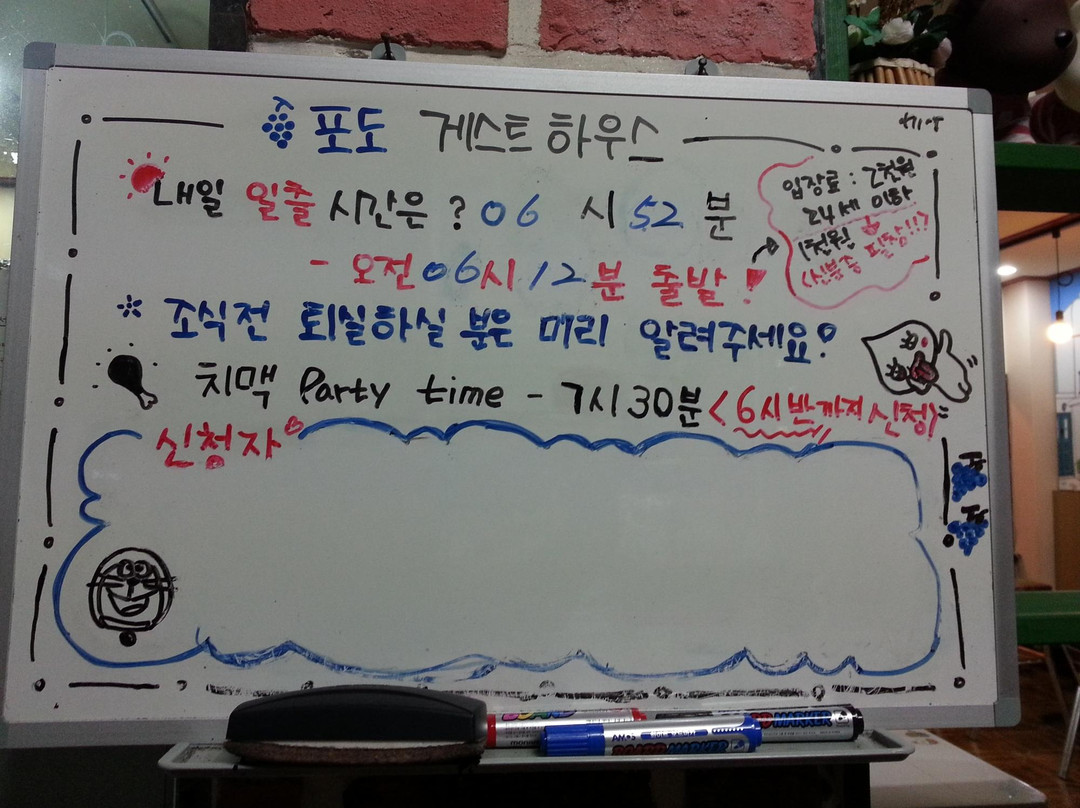 포도 게스트하우스
내일 일출 시간은? 06시 52분
- 오전 06시 12분 출발!
입장료 : 2천원
24세 이하
1천원
(신분증 필참!!)
* 조식전 퇴실하실 분은 미리 알려주세요?
치맥 Party time - 7시30분 <6시반까지 신청>
신청자
BOARD MARKER